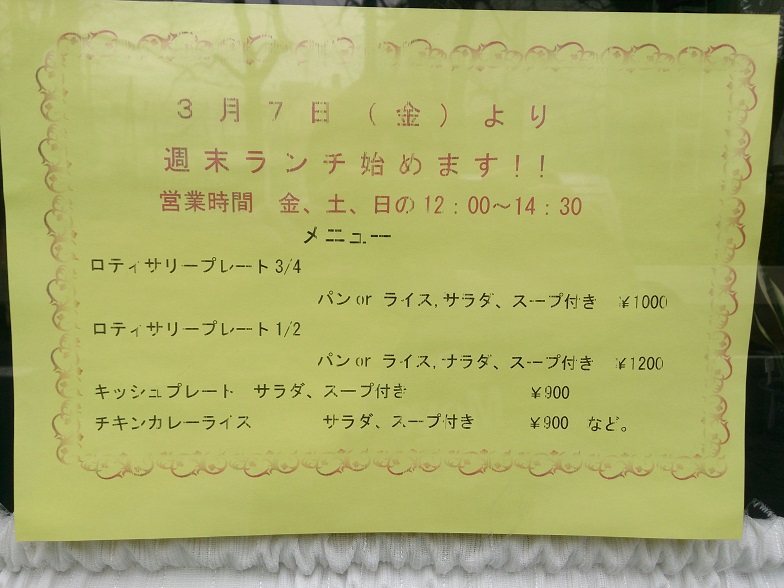 3月7日(金)より
週末ランチ始めます!!
営業時間 金、土、日の12:00～14:30
メニュー
ロティサリープレート3/4
パンor ライス,サラダ、スープ付き ¥1000
ロティサリープレート1/2
パンor ライス,サラダ、スープ付き ¥1200
キッシュプレート サラダ、スープ付き ¥900
チキンカレーライス サラダ、スープ付き ¥900 など。